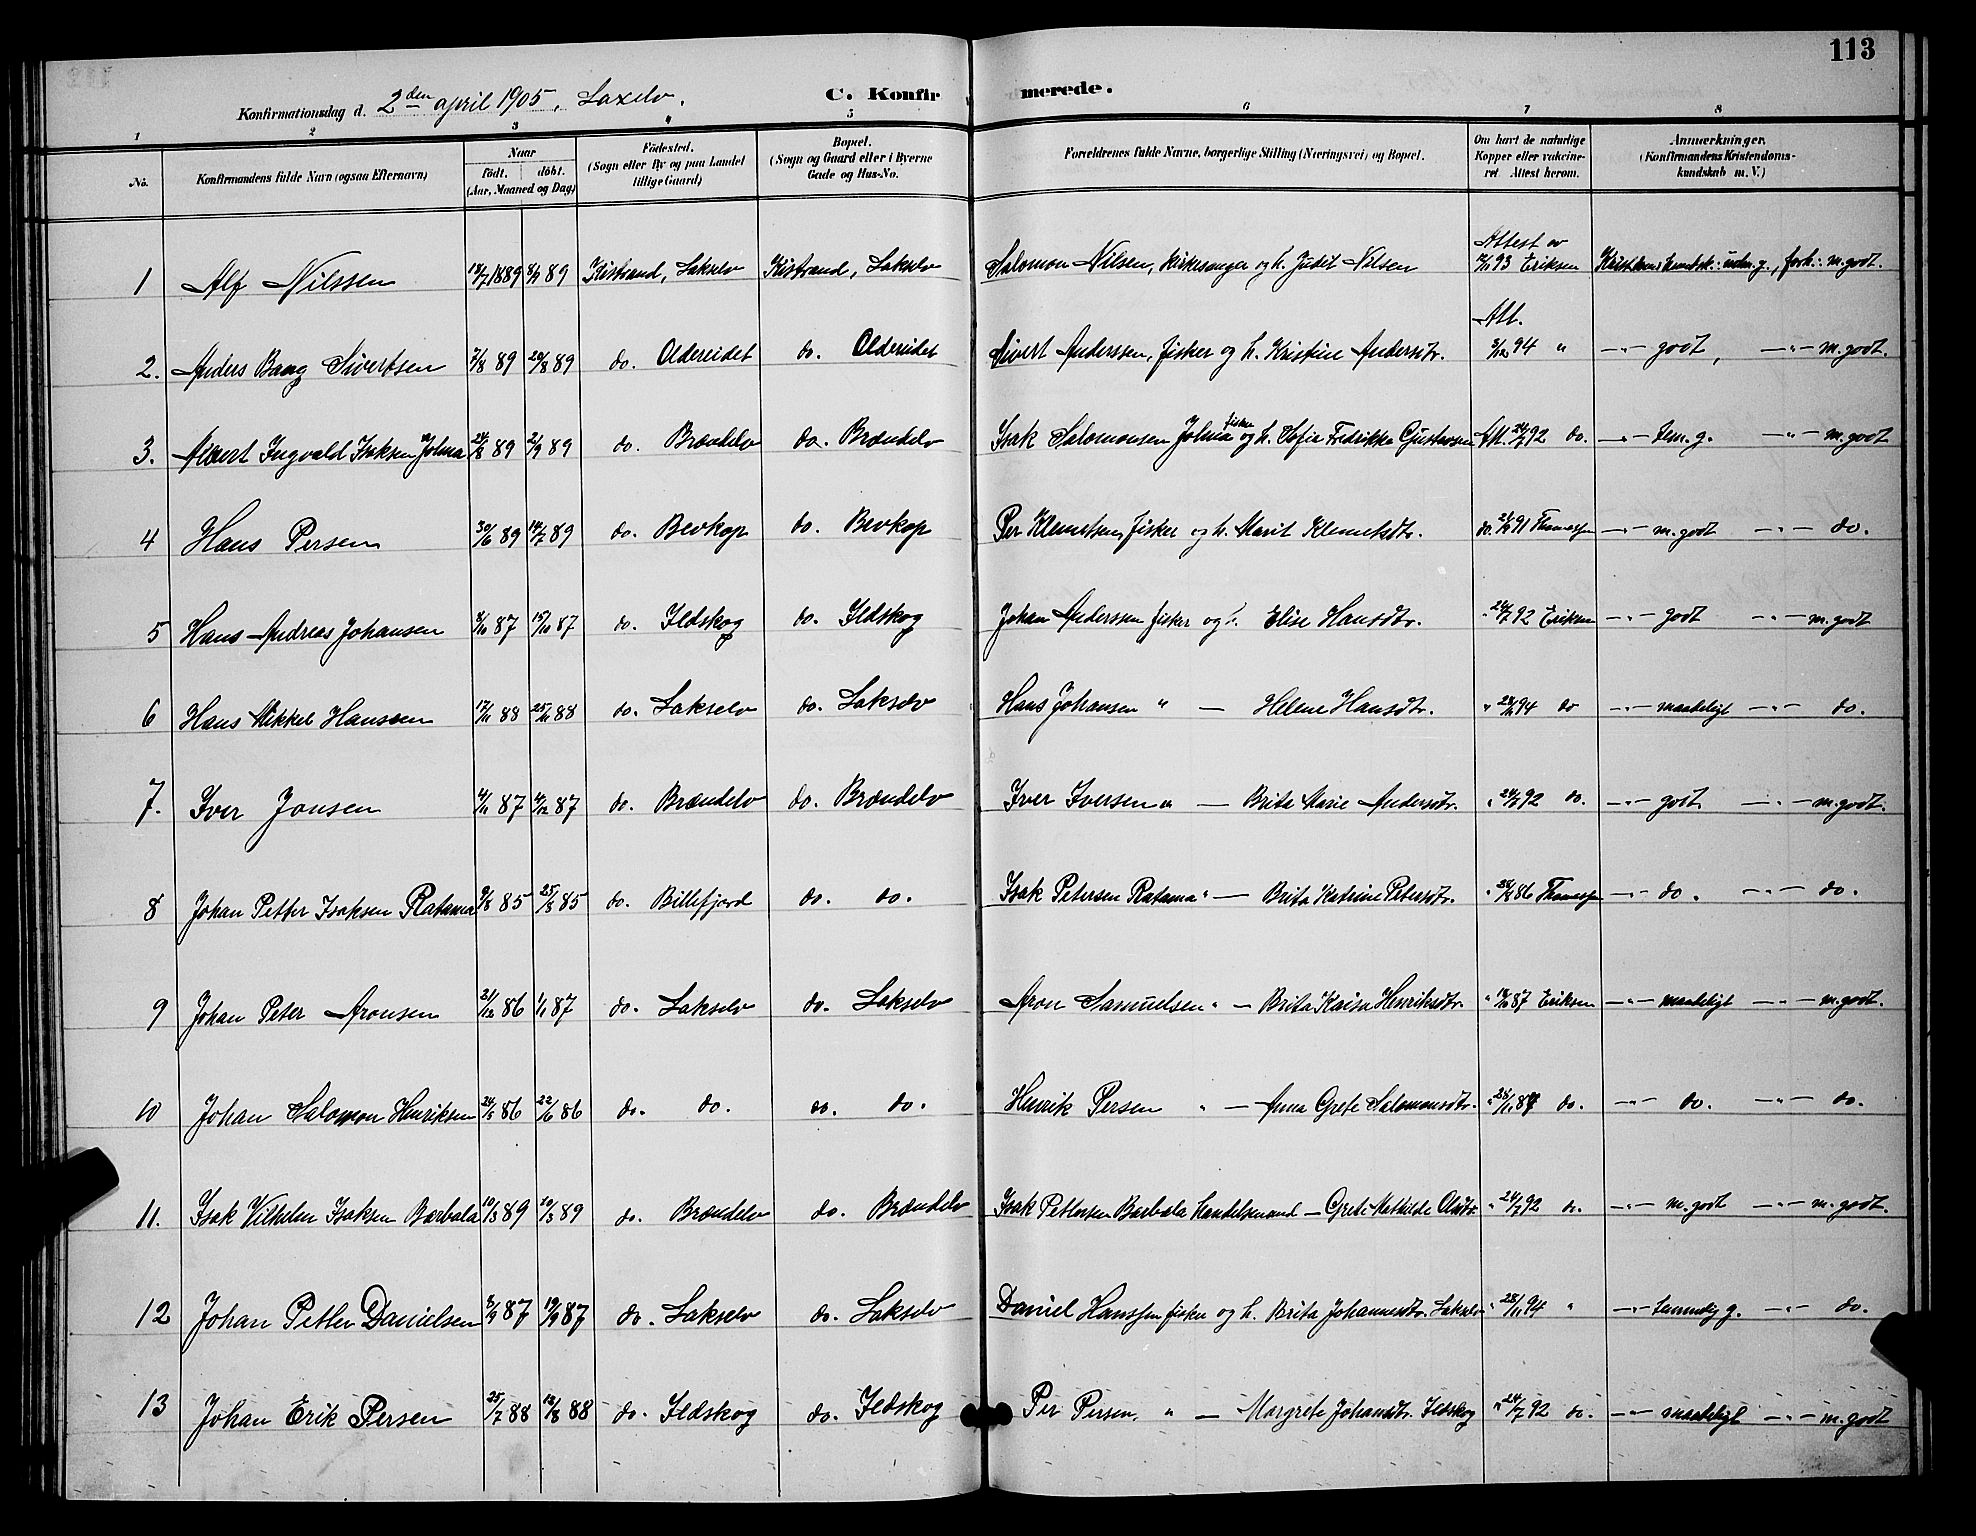 113
Konfirmationsdag d. 2den april 1905, Laxelv. C. Konfirmerede.
1 2 3 4 5 6 7 8
No. Konfirmandens fulde Navn (ogsaa Efternavn) Naar födt. döbt. (Aar, Maaned og Dag) Födested. (Sogn eller By og paa Landet tillige Gaard) Bopæl. (Sogn og Gaard eller i Byerne Gade og Hus-No. Forældrenes fulde Navne, borgerlige Stilling (Næringsvei) og Bopæl. Om havt de naturlige Kopper eller vakcineret Attest herom. Anmærkninger. (Konfirmandens Kristendomskundskab m. V.)
1 Alf Nilssen 18/7 1889 8/9 89 Kistrand, Lakselv Kistrand, Lakselv Salomon Nilsen, kirkesanger og h. Judit Nilsen Attest av 93 Eriksen Kristdoms kundsk.: udm. g., forh.: m. godt.
2. Anders Bang Sivertsen 7/8 89 20/8 89 do. Oldereidet do. Oldereidet Sivert Anderssen, fisker og h. Kristine Andersdtr. Att. 3/12 94 " —"— godt, —"— m. godt.
3. Albert Ingvald Isaksen Jolma 24/8 89 2/9 89 do. Brændelv do. Brændelv Isak Salomonsen Jolma fisker og h. Sofie Fredrikke Gustavsen Att. 24/7 92 do. —"— tem. g. —"— m. godt
4 Hans Persen 30/6 89 14/7 89 do. Bevkop do. Bevkop Per Klemetsen, fisker og h. Marit Klemetsdtr. do. 91 Thomassen —"— m. godt —"— do.
5 Hans Andreas Johansen 8/10 87 15/10 87 do. Ildskog do. Ildskog Johan Anderssen fisker og h. Elise Hansdtr. " 24/7 92 Eriksen —"— godt —"— m. godt
6 Hans Mikkel Hanssen 17/11 88 25/11 88 do. Lakselv do. Lakselv Hans Johansen " — Helene Hansdtr. " 28/11 94 do —"— maadeligt —"— do.
7. Iver Jonsen 4/11 87 4/12 87 do. Brændelv do. Brændelv Iver Iversen " — Brita Marie Andersdtr. " 24/7 92 do. —"— godt —"— m. godt.
8 Johan Petter Isaksen Ratama 9/8 85 25/8 85 do. Billefjord do. do. Isak Petersen Ratama " — Brita Katrine Petersdtr. " 86 Thomassen —"— do. —"— do.
9 Johan Peter Aronsen 21/12 86 1/1 87 do. Lakselv do. Lakselv Aron Samuelsen " — Brita Kaisa Henriksdtr. " 87 Eriksen —"— maadeligt —"— m. godt.
10 Johan Salomon Henriksen 24/5 86 22/6 86 do. do. do. do. Henrik Persen " — Anna Grete Salomonsdtr. " 28/11 87 do. —"— do. —"— do.
11. Isak Vilhelm Isaksen Barbala 10/3 89 19/3 89 do. Brændelv do. Brændelv Isak Pettersen Barbala Handelsmand — Grete Mathilde Olsdtr. " 24/7 92 do. —"— m. godt —"— m. godt.
12 Johan Petter Danielsen 3/9 87 19/9 87 do. Lakselv do. Lakselv Daniel Hanssen fisker og h. Brita Johannesdtr. Lakselv " 28/11 94 " —"— temmelig g. —"— do.
13 Johan Erik Persen 25/7 88 12/8 88 do. Ildskog do. Ildskog Per Persen, " — Margrete Johansdtr. Ildskog " 24/7 92 do. —"— maadeligt —"— m. godt